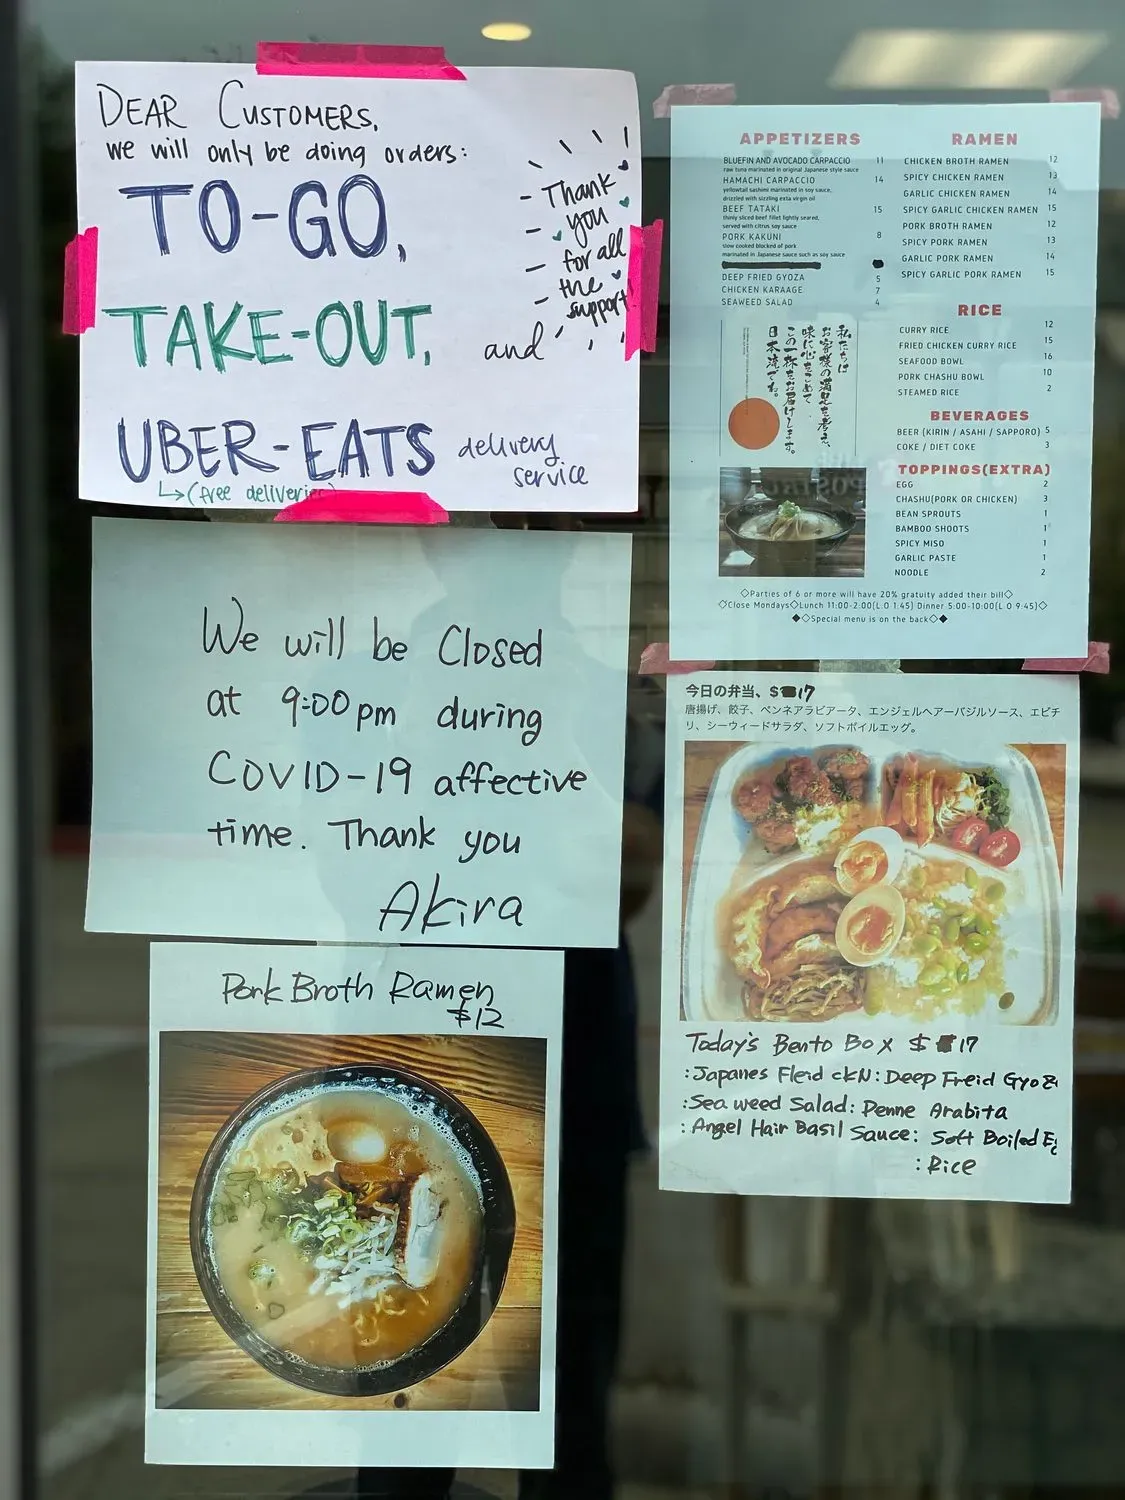 DEAR CUSTOMERS,
we will only be doing orders:
TO-GO,
TAKE-OUT, and
UBER-EATS delivery service
(free deliveries)
Thank
you
for all
the
support!
We will be Closed
at 9:00pm during
COVID-19 affective
time. Thank you
Akira
Pork Broth Ramen
$12
APPETIZERS
BLUEFIN AND AVOCADO CARPACCIO 11
raw tuna marinated in original Japanese style sauce
HAMACHI CARPACCIO 14
yellowtail sashimi marinated in soy sauce,
drizzled with sizzling exta virgin oil
BEEF TATAKI 15
thinly sliced beef fillet lightly seared,
served with citrus soy sauce
PORK KAKUNI 8
slow cooked blocked of pork
marinated in Japanese sauce such as soy sauce
DEEP FRIED GYOZA 5
CHICKEN KARAAGE 7
SEAWEED SALAD 4
私たちは
お客様の満足を考え、
味に心をこめて
この一杯をお届けします。
日本流でね。
RAMEN
CHICKEN BROTH RAMEN 12
SPICY CHICKEN RAMEN 13
GARLIC CHICKEN RAMEN 14
SPICY GARLIC CHICKEN RAMEN 15
PORK BROTH RAMEN 12
SPICY PORK RAMEN 13
GARLIC PORK RAMEN 14
SPICY GARLIC PORK RAMEN 15
RICE
CURRY RICE 12
FRIED CHICKEN CURRY RICE 15
SEAFOOD BOWL 16
PORK CHASHU BOWL 10
STEAMED RICE 2
BEVERAGES
BEER (KIRIN / ASAHI / SAPPORO) 5
COKE / DIET COKE 3
TOPPINGS(EXTRA)
EGG 2
CHASHU(PORK OR CHICKEN) 3
BEAN SPROUTS 1
BAMBOO SHOOTS 1
SPICY MISO 1
GARLIC PASTE 1
NOODLE 2
◇Parties of 6 or more will have 20% gratuity added their bill◇
◇Close Mondays◇Lunch 11:00-2:00(L.O 1:45) Dinner 5:00-10:00(L.O 9:45)◇
◆◇Special menu is on the back◇◆
今日の弁当、$17
唐揚げ、餃子、ペンネアラビアータ、エンジェルヘアーバジルソース、エビチ
リ、シーウィードサラダ、ソフトボイルエッグ。
Today's Bento Box $17
:Japanes Fleid ckN:Deep Freid Gyoz
:Sea weed Salad: Penne Arabita
:Angel Hair Basil Sauce: Soft Boiled Eg
:Rice